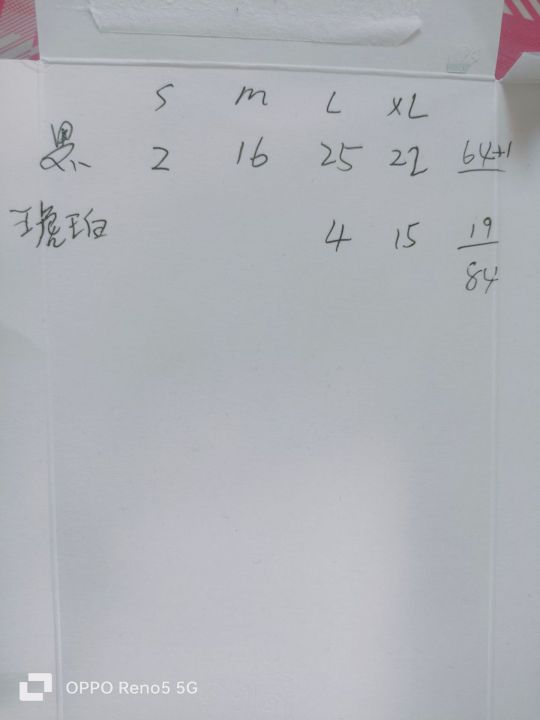 S M L XL
黑 2 16 25 22 64+1
琥珀 4 15 19
84
OPPO Reno5 5G